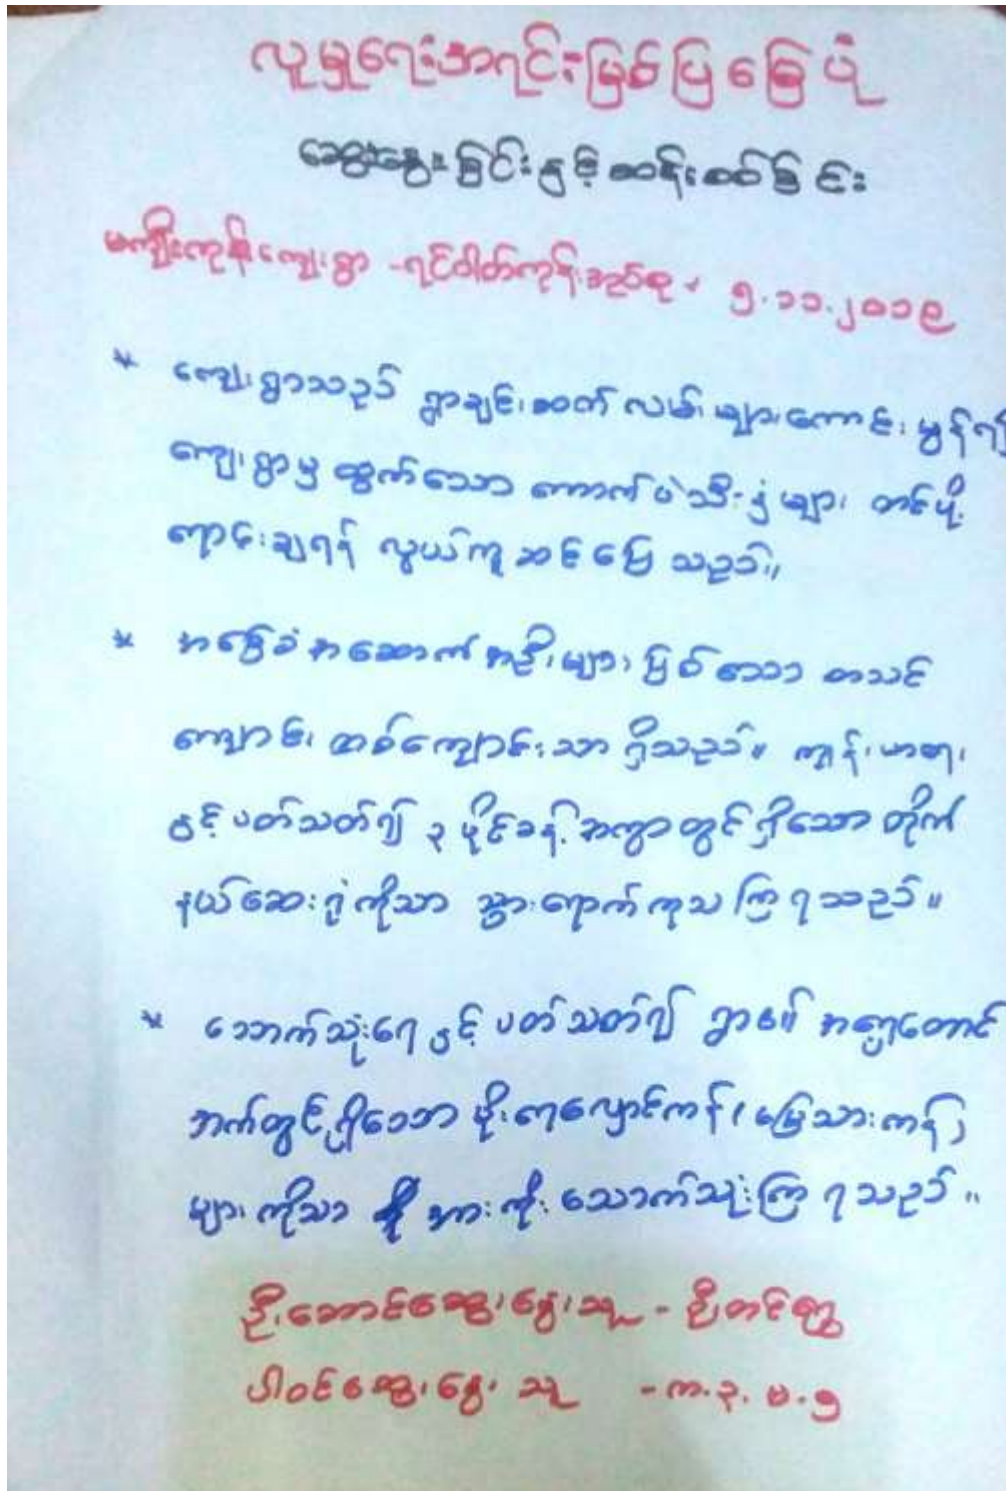 လူမှုရေးအရင်းမြစ်ပြမြေပုံ
ဆွေးနွေးခြင်းနှင့်ဆန်းစစ်ခြင်း
မကျီးကုန်းကျေးရွာ - ရင်ဝါတ်ကုန်းအုပ်စု ၊ ၅.၁၁.၂၀၁၉
* ကျေးရွာသည် ရွာချင်းဆက် လမ်းများကောင်းမွန်၍
ကျေးရွာမှ ထွက်သော ကောက်ပဲသီးနှံများ တင်ပို့
ရောင်းချရန် လွယ်ကူ ဆင်ပြေ သည်။
* အခြေခံ အဆောက်အဦးများ ဖြစ်သော စာသင်
ကျောင်း တစ်ကျောင်းသာ ရှိသည်။ ကျန်းမာရေး
နှင့် ပတ်သတ်၍ ၃ မိုင်ခန့် အကွာတွင် ရှိသော တိုက်
နယ်ဆေးရုံကိုသာ သွားရောက် ကုသ ကြရသည်။
* သောက်သုံးရေ နှင့် ပတ်သတ်၍ ရွာ၏ အရှေ့တောင်
ဘက်တွင် ရှိသော မိုးရေလှောင်ကန် (မြေသားကန်)
များကိုသာ အားကိုး သောက်သုံးကြ ရသည်။
ဦးဆောင်ဆွေးနွေးသူ - ဦးတင်ရွှေ
ပါဝင်ဆွေးနွေး သူ - က.၃. မ.၅